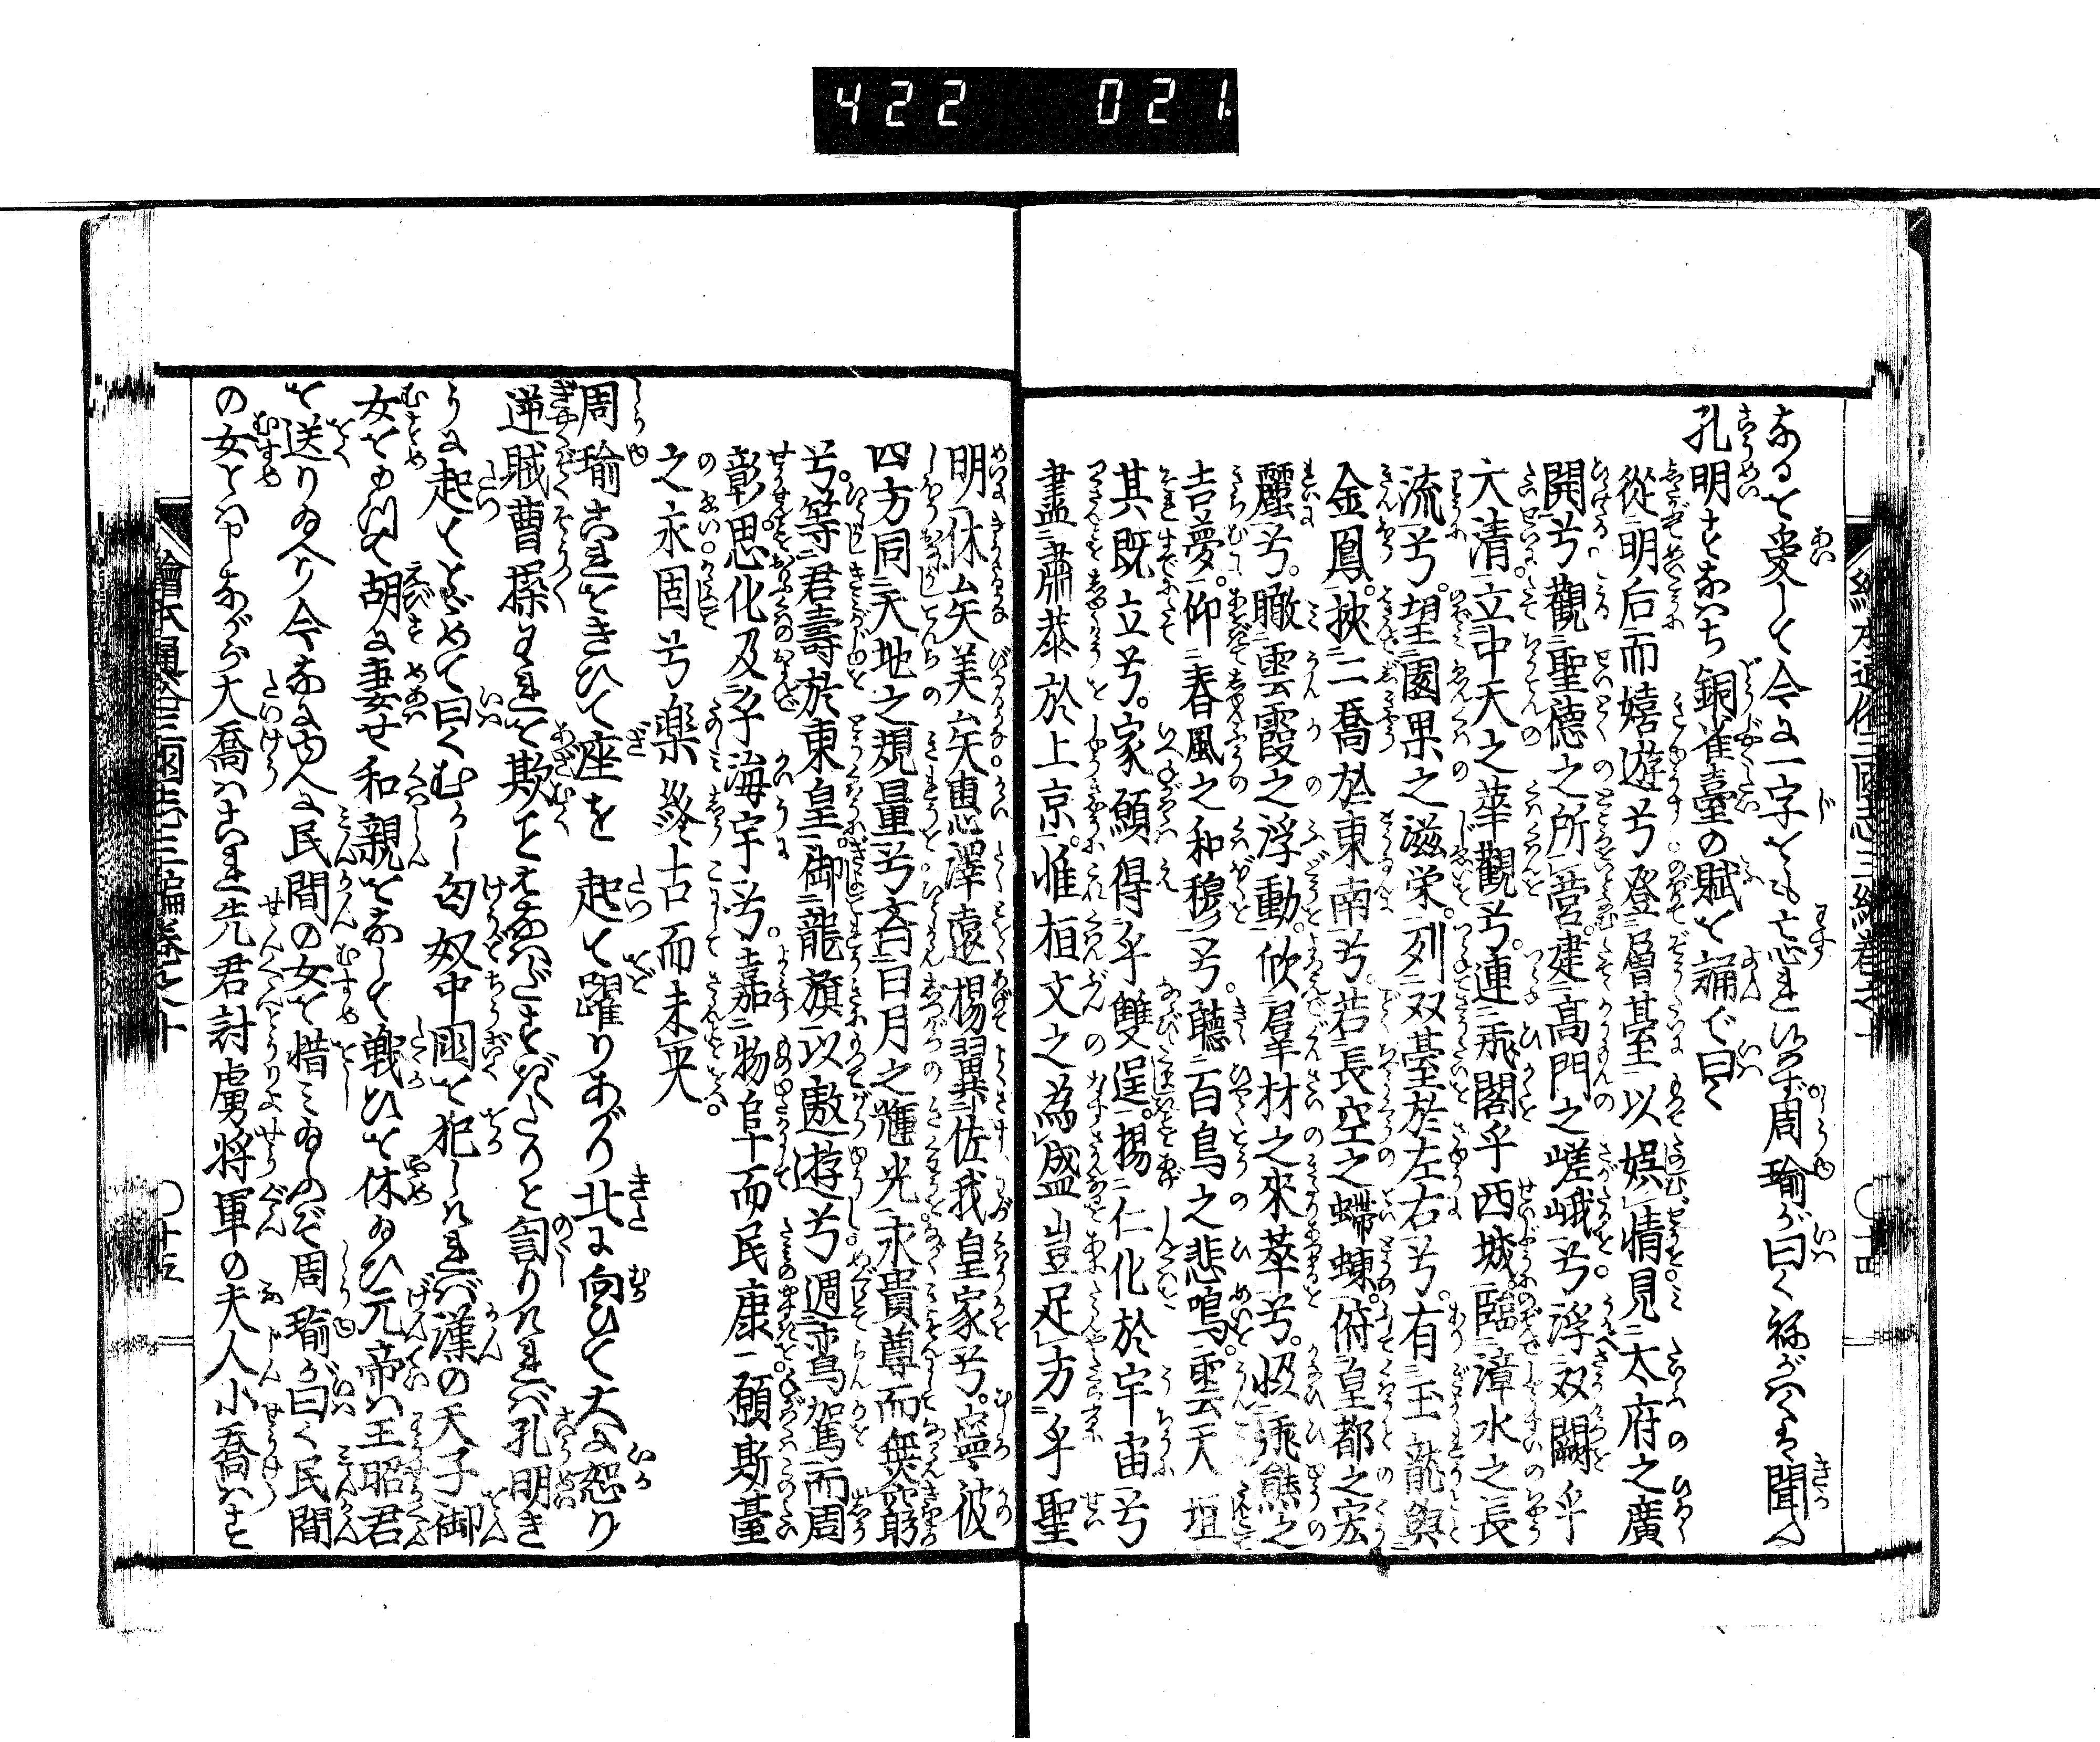 422 021
繪本通俗三國志三編巻之十
〇十四
あるを愛して今に一字をも忘れ侍らず周瑜が曰く
孔明すなはち銅雀臺の賦を誦で曰く
從明后而嬉遊兮登層臺以娯情見太府之廣
開兮觀聖德之所營建高門之嵯峨兮浮双闕乎
太清立中天之華觀兮連飛閣乎西城臨漳水之長
流兮望園果之滋栄列双臺於左右兮有玉龍與
金鳳挾二喬於東南兮若長空之蝃蝀俯皇都之宏
麗兮瞰雲霞之浮動欣羣材之來萃兮恊飛熊之
吉夢仰春風之和穆兮聽百鳥之悲鳴雲天垣
其既立兮家願得乎雙逞揚仁化於宇宙兮
盡肅恭於上京惟桓文之為盛豈足方乎聖
明休矣美矣惠澤遠揚翼佐我皇家兮寧彼
四方同天地之規量兮齊日月之輝光永貴尊而無窮
兮等君壽於東皇御龍旗以遨遊兮週鸞駕而周
彰思化及乎海宇兮嘉物阜而民康願斯臺
之永固兮樂終古而未央
周瑜これをきひて座を起て躍りあがり北に向ひて大に怒り
逆賊曹操われを欺ことはなはだすぎたりと罵りければ孔明き
うに起てとどめて曰くむかし匈奴中國を犯しければ漢の天子御
女をもつて胡に妻せ和親をなして戦ひを休ゐひ元帝は王昭君
を送りゐへり今なに由へに民間の女を惜みゐふぞ周瑜が曰く民間
の女とは申ながら大喬はこれ先君討虜将軍の夫人小喬はす
繪本通俗三國志三編巻之十
〇十五